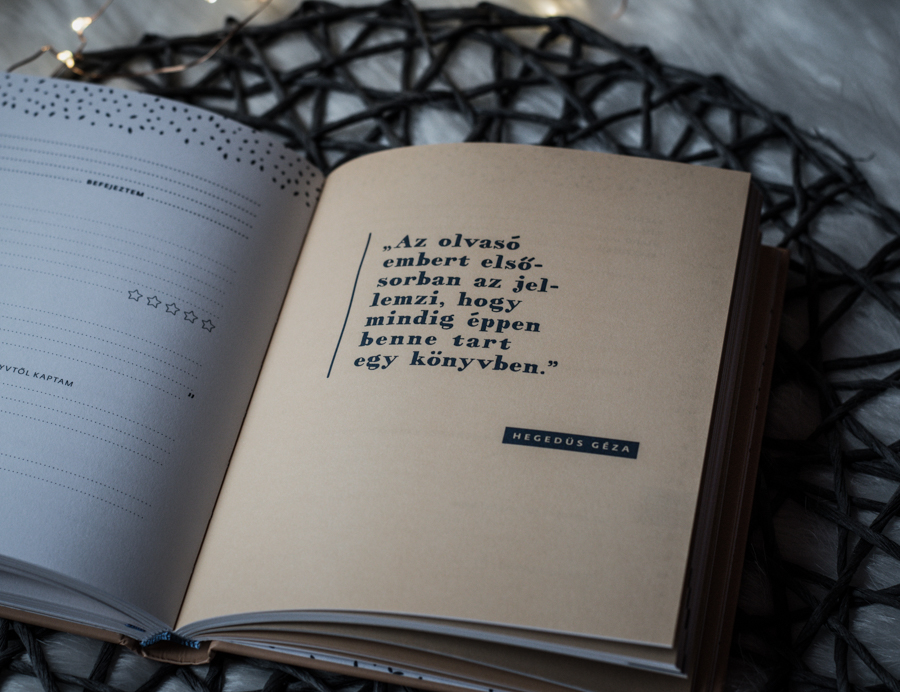 BEFEJEZTEM
KAPTAM
"
„Az olvasó
embert első-
sorban az jel-
lemzi, hogy
mindig éppen
benne tart
egy könyvben.”
HEGEDŰS GÉZA